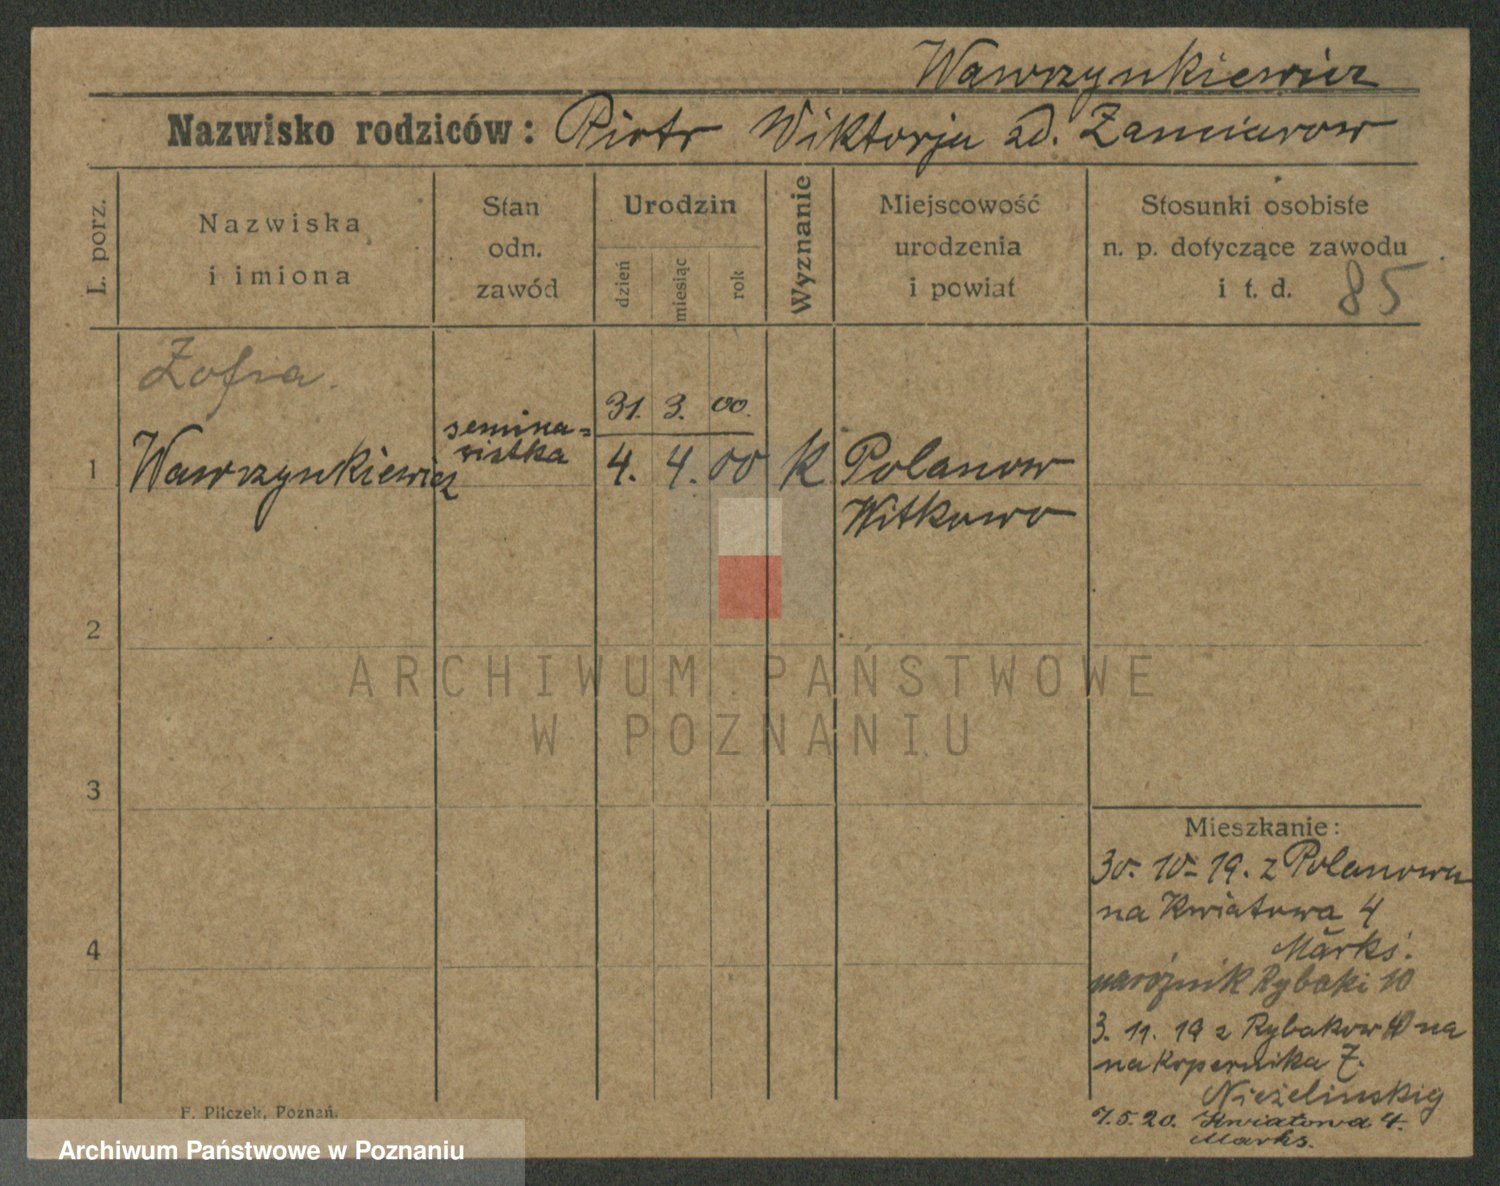 Wawrzynkiewicz
Nazwisko rodziców: Piotr Wiktorja zd. Zamiarow
L. porz.
Nazwiska
i imiona
Stan
odn.
zawód
Urodzin
dzień
miesiąc
rok
Wyznanie
Miejscowość
urodzenia
i powiat
Stosunki osobiste
n. p. dotyczące zawodu
i t. d. 85
Zofia.
31. 3. 00.
1 Wawrzynkiewicz semina=
ristka 4. 4. 00 K Polanow
Witkowo
2
ARCHIWUM PAŃSTWOWE
W POZNANIU
3
Mieszkanie:
30. 10. 19. z Polanowa
na Kwiatowa 4
Marks.
narożnik Rybaki 10
3. 11. 19 z Rybakow na
na Kopernika 7.
4
7. 5. 20. Kwiatowa 4.
Marks.
F. Pilczek, Poznań.
Archiwum Państwowe w Poznaniu